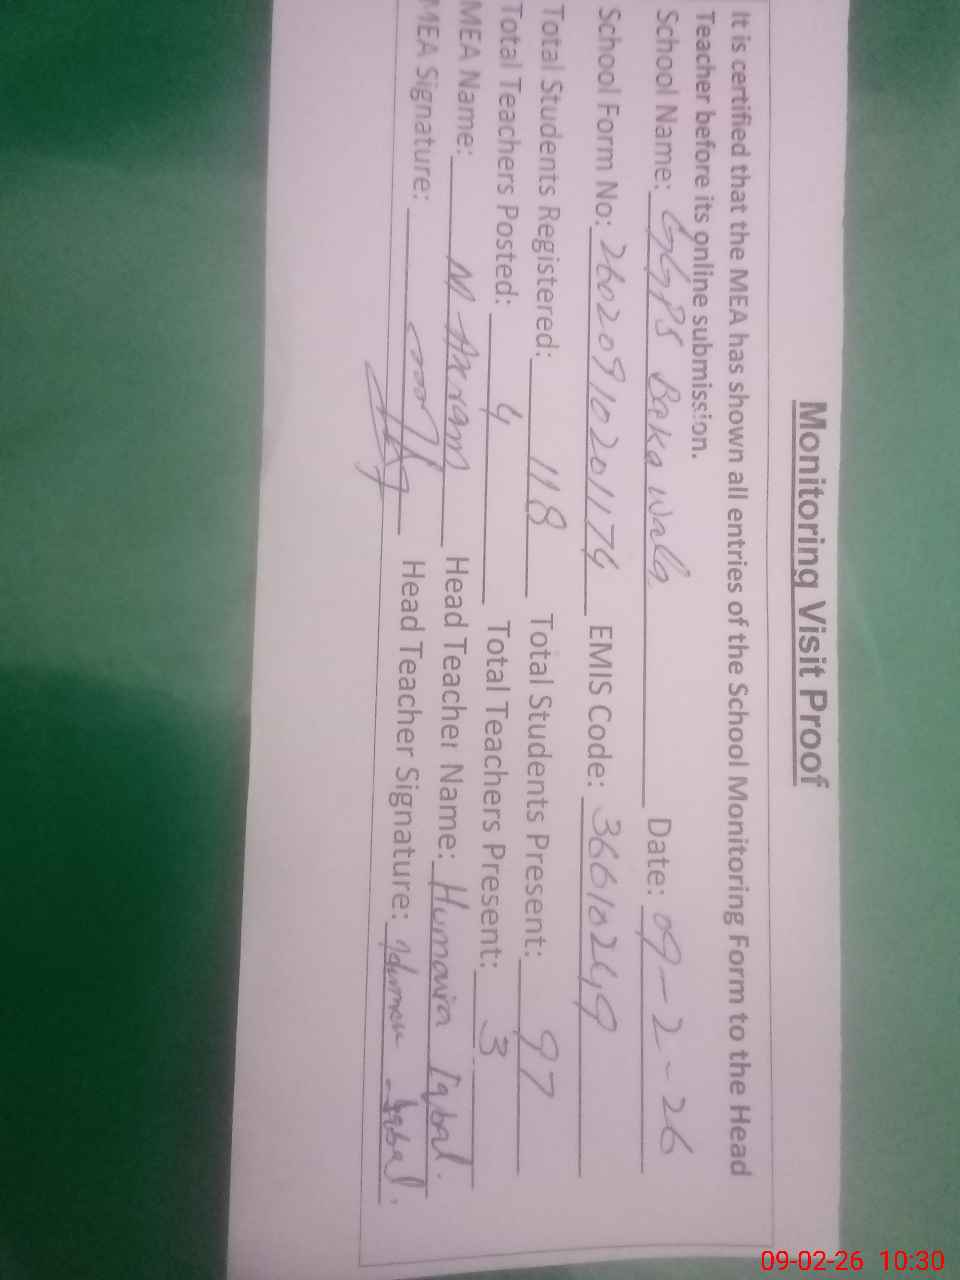 Monitoring Visit Proof
It is certified that the MEA has shown all entries of the School Monitoring Form to the Head
Teacher before its online submission.
School Name: GGPS Baka Wala Date: 09-2-26
School Form No: 26020910201174 EMIS Code: 36610249
Total Students Registered: 118 Total Students Present: 97
Total Teachers Posted: 4 Total Teachers Present: 3
MEA Name: M Akram Head Teacher Name: Humaira Iqbal.
MEA Signature: Head Teacher Signature: Iqbal.
09-02-26 10:30